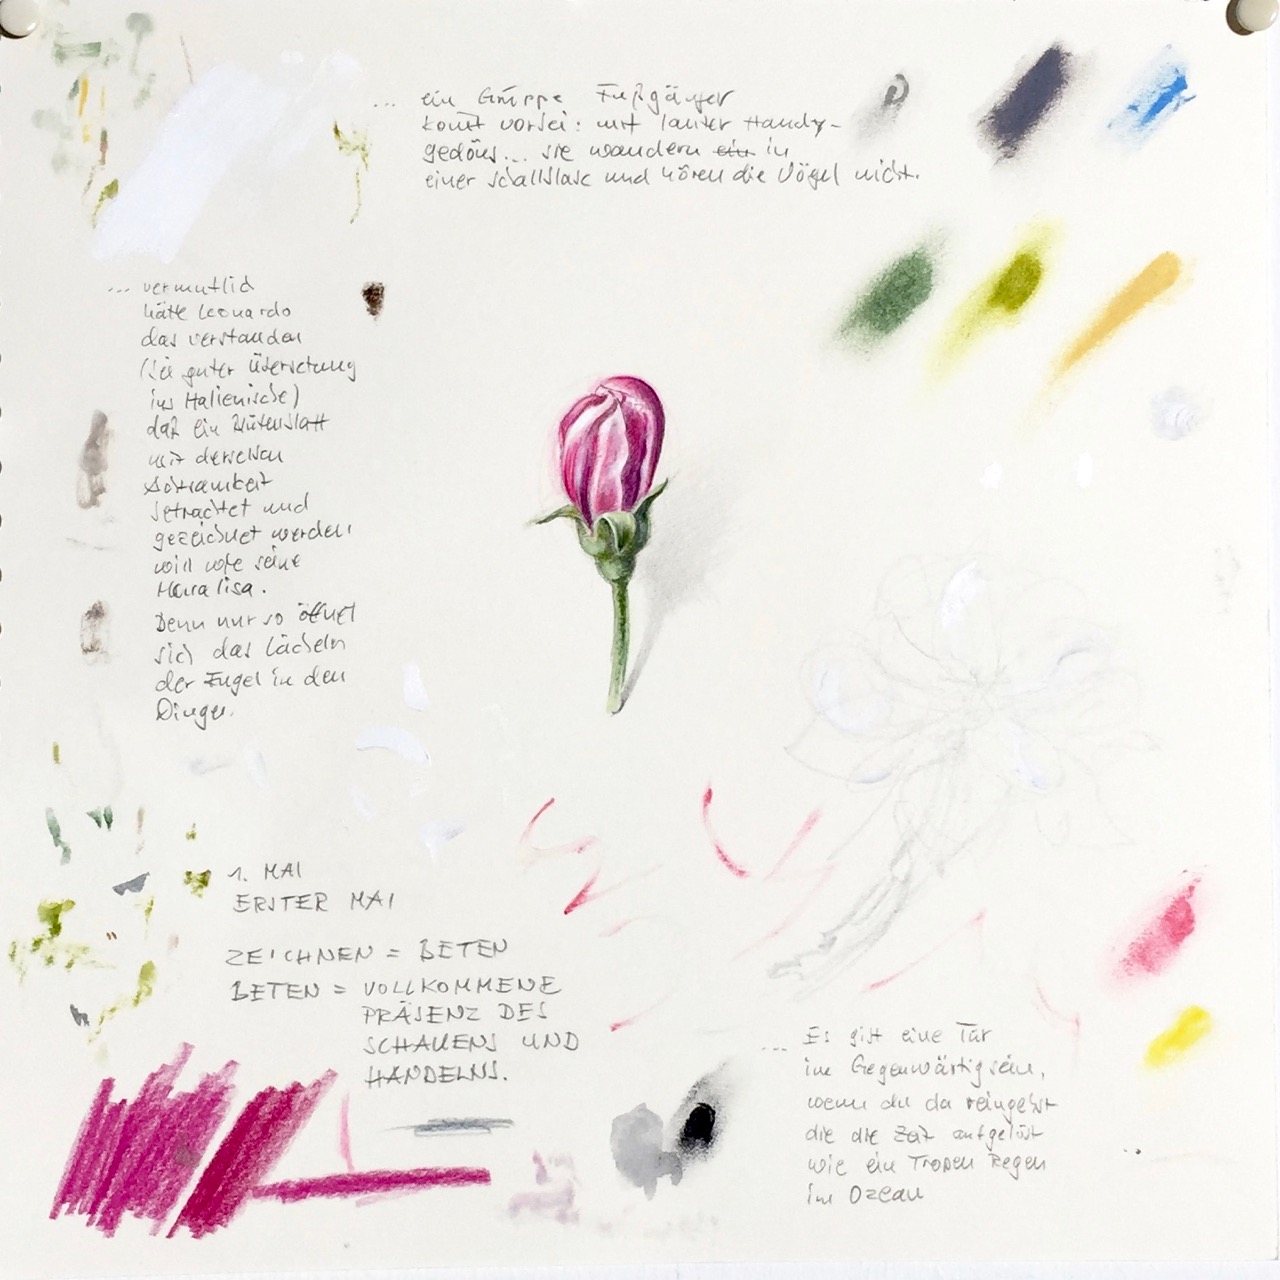 ... ein Gruppe Fußgänger
kommt vorbei: mit lauter Handy-
gedöns... sie wandern ein in
einer Schallblase und hören die Vögel nicht.
... vermutlich
hätte Leonardo
das verstanden
(bei guter Übersetzung
ins Italienische)
daß ein Blütenblatt
mit derselben
Achtsamkeit
betrachtet und
gezeichnet werden
will wie seine
Mona lisa.
Denn nur so öffnet
sich das Lächeln
der Engel in den
Dingen.
1. MAI
ERSTER MAI
ZEICHNEN = BETEN
BETEN = VOLLKOMMENE
PRÄSENZ DES
SCHAUENS UND
HANDELNS.
... Es gibt eine Tür
im Gegenwärtigsein,
wenn du da reingehst
die die Zeit aufgelöst
wie ein Tropen Regen
im Ozean